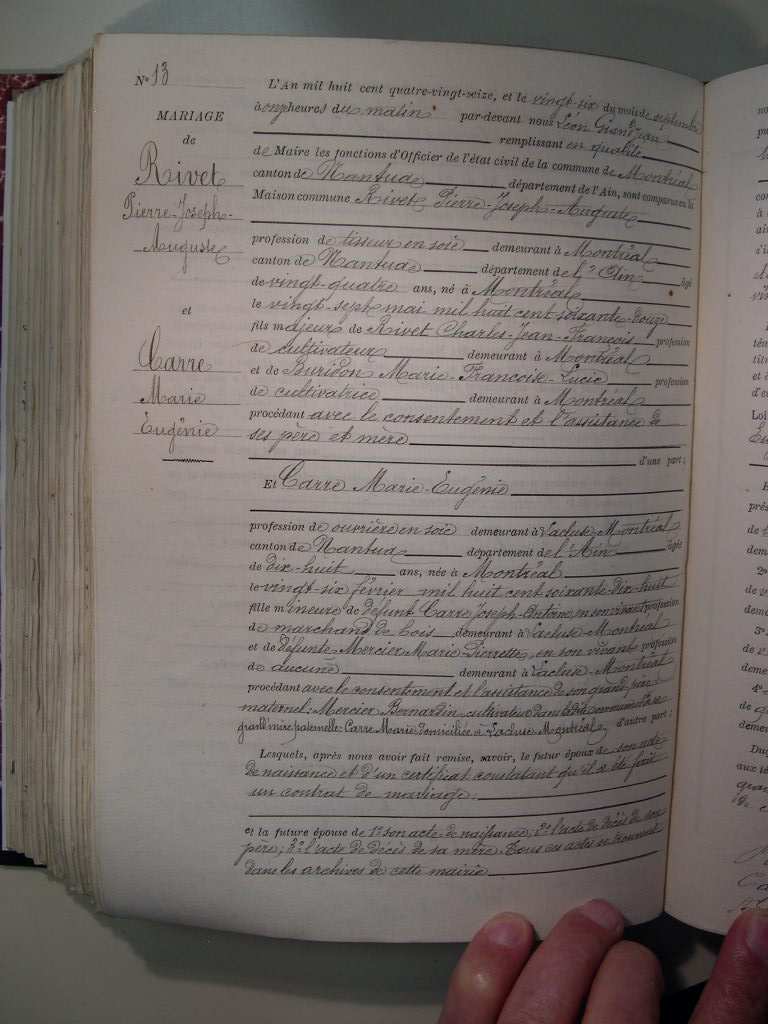 N° 13
MARIAGE
de
Rivet
Pierre-Joseph-
Auguste
et
Carre
Marie
Eugénie
L'An mil huit cent quatre-vingt-seize, et le vingt-six du mois de septembre
à onze heures du matin par-devant nous Léon
remplissant en qualité
de Maire les fonctions d'Officier de l'état civil de la commune de Montréal
canton de Nantua département de l'Ain, sont comparus en la
Maison commune Rivet Pierre-Joseph-Auguste
profession de tisseur en soie demeurant à Montréal
canton de Nantua département de l' Ain âgé
de vingt-quatre ans, né à Montréal
le vingt-sept mai mil huit cent soixante-douze
fils majeur de Rivet Charles-Jean-François profession
de cultivateur demeurant à Montréal
et de Buridon Marie-Francoise-Lucie profession
de cultivatrice demeurant à Montréal
procédant avec le consentement et l'assistance de
ses père et mère
d'une part ;
Et Carre Marie-Eugénie
profession de ouvrière en soie demeurant à Lacluse-Montréal
canton de Nantua département de l'Ain âgée
de dix-huit ans, née à Montréal
le vingt-six février mil huit cent soixante-dix-huit
fille mineure de défunt Carre Joseph-Antoine, en son vivant profession
de marchand de bois demeurant à Lacluse-Montréal
et de défunte Mercier Marie Pierrette, en son vivant profession
de aucune demeurant à Lacluse-Montréal
procédant avec le consentement et l'assistance de son grand-père
maternel: Mercier Bernardin, cultivateur
grand'mère paternelle: Carre Marie domiciliée à Lacluse Montréal d'autre part :
Lesquels, après nous avoir fait remise, savoir, le futur époux de son acte
de naissance et d'un certificat constatant qu'il a été fait
un contrat de mariage.
et la future épouse de 1° son acte de naissance; 2° l'acte de décès de son
père; 3° l'acte de décès de sa mère. Tous ces actes se trouvent
dans les archives de cette mairie